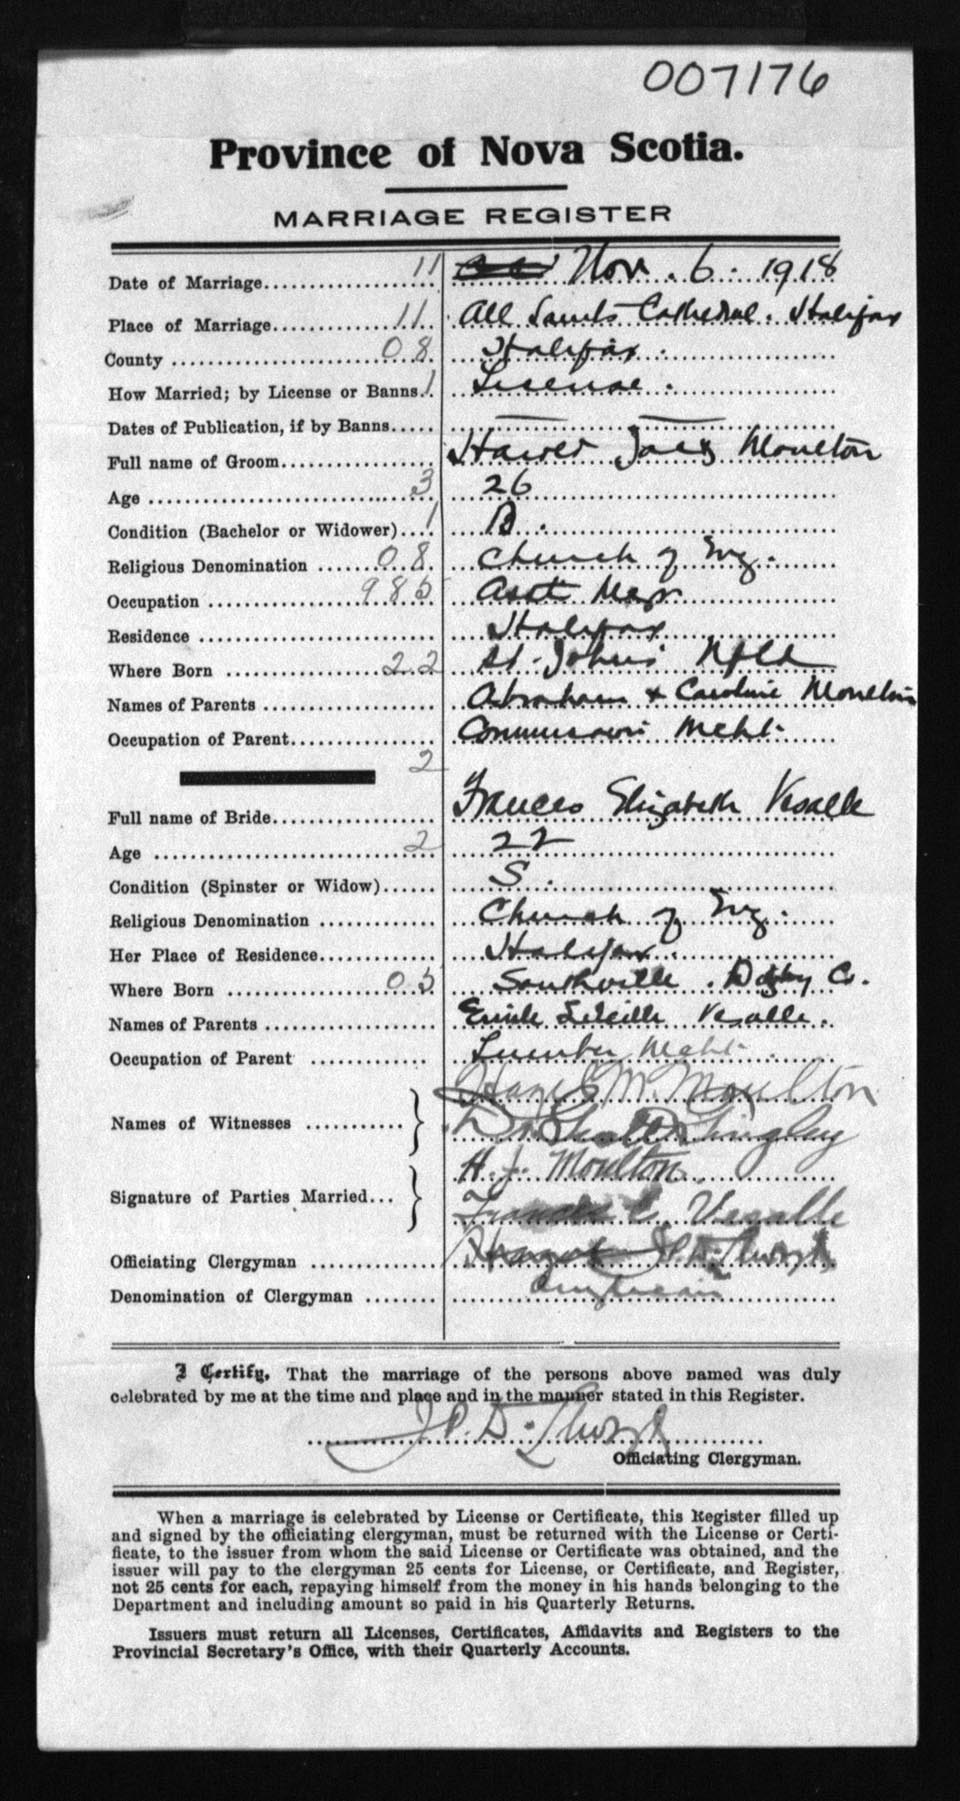 007176
Province of Nova Scotia.
MARRIAGE REGISTER
Date of Marriage 11 Nov. 6. 1918
Place of Marriage 11 All Saints Cathedral. Halifax
County 08 Halifax.
How Married; by License or Banns 1 License.
Dates of Publication, if by Banns
Full name of Groom Moulton
Age 3 26
Condition (Bachelor or Widower) 1 B.
Religious Denomination 08 Church of Eng.
Occupation 985 Asst
Residence Halifax
Where Born 22 St. John's Nfld
Names of Parents Abraham & Caroline Moulton
Occupation of Parent Commission Mcht.
2
Full name of Bride Frances Elizabeth Vesalle
Age 2 22
Condition (Spinster or Widow) S.
Religious Denomination Church of Eng.
Her Place of Residence Halifax.
Where Born 05 Southville. Digby Co.
Names of Parents Vesalle.
Occupation of Parent Lumber Mcht.
Names of Witnesses M. Moulton
Signature of Parties Married H. J. Moulton
Frances E. Vesalle
Officiating Clergyman
Denomination of Clergyman Anglican
I Certify, That the marriage of the persons above named was duly
celebrated by me at the time and place and in the manner stated in this Register.
Officiating Clergyman.
When a marriage is celebrated by License or Certificate, this Register filled up
and signed by the officiating clergyman, must be returned with the License or Certi-
ficate, to the issuer from whom the said License or Certificate was obtained, and the
issuer will pay to the clergyman 25 cents for License, or Certificate, and Register,
not 25 cents for each, repaying himself from the money in his hands belonging to the
Department and including amount so paid in his Quarterly Returns.
Issuers must return all Licenses, Certificates, Affidavits and Registers to the
Provincial Secretary's Office, with their Quarterly Accounts.